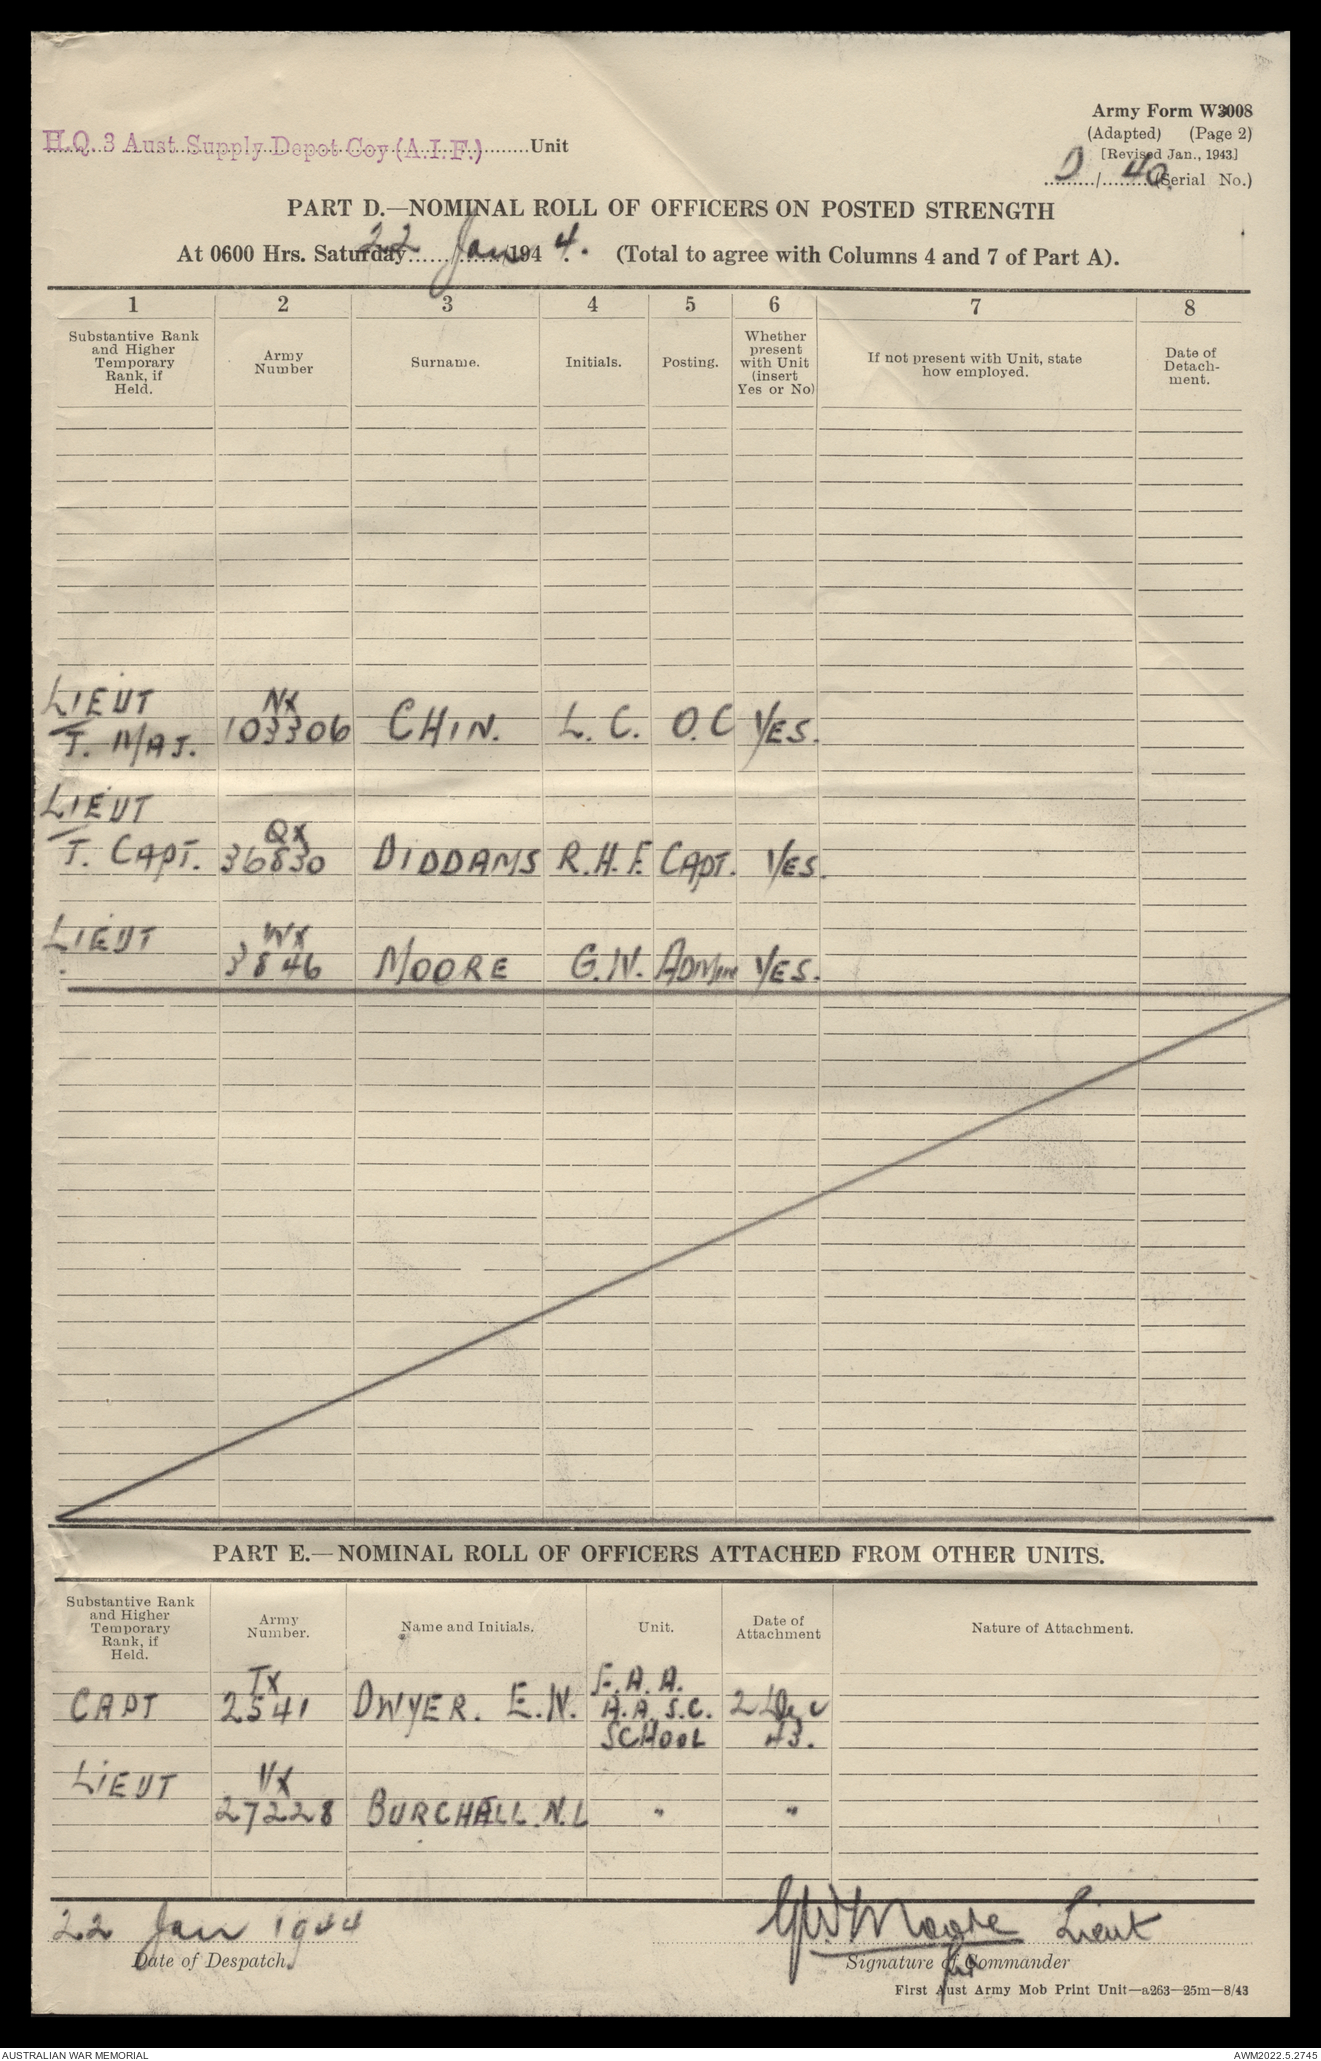 Army Form W3008
(Adapted) (Page 2)
[Revised Jan., 1943]
H.Q. 3 Aust Supply Depot Coy (A.I.F.) Unit
D / 40. (Serial No.)
PART D.—NOMINAL ROLL OF OFFICERS ON POSTED STRENGTH
At 0600 Hrs. Saturday 22 Jan 1944. (Total to agree with Columns 4 and 7 of Part A).
1 2 3 4 5 6 7 8
Substantive Rank and Higher Temporary Rank, if Held.
Army Number
Surname.
Initials.
Posting.
Whether present with Unit (insert Yes or No)
If not present with Unit, state how employed.
Date of Detach- ment.
LIEUT NX
T. MAJ. 103306 CHIN. L. C. O.C YES.
LIEUT QX
T. CAPT. 36830 DIDDAMS R.H.F. CAPT. YES.
LIEUT WX
3846 MOORE G.W. ADMIN YES.
PART E.—NOMINAL ROLL OF OFFICERS ATTACHED FROM OTHER UNITS.
Substantive Rank and Higher Temporary Rank, if Held.
Army Number.
Name and Initials.
Unit.
Date of Attachment
Nature of Attachment.
TX
CAPT 2541 DWYER. E.W. A.A.S.C. Dec
SCHOOL 43.
LIEUT VX
27228 BURCHALL. N.L " "
22 Jan 1944 GW Moore Lieut
Date of Despatch. Signature of Commander
for
First Aust Army Mob Print Unit—a263—25m—8/43
AUSTRALIAN WAR MEMORIAL AWM2022.5.2745